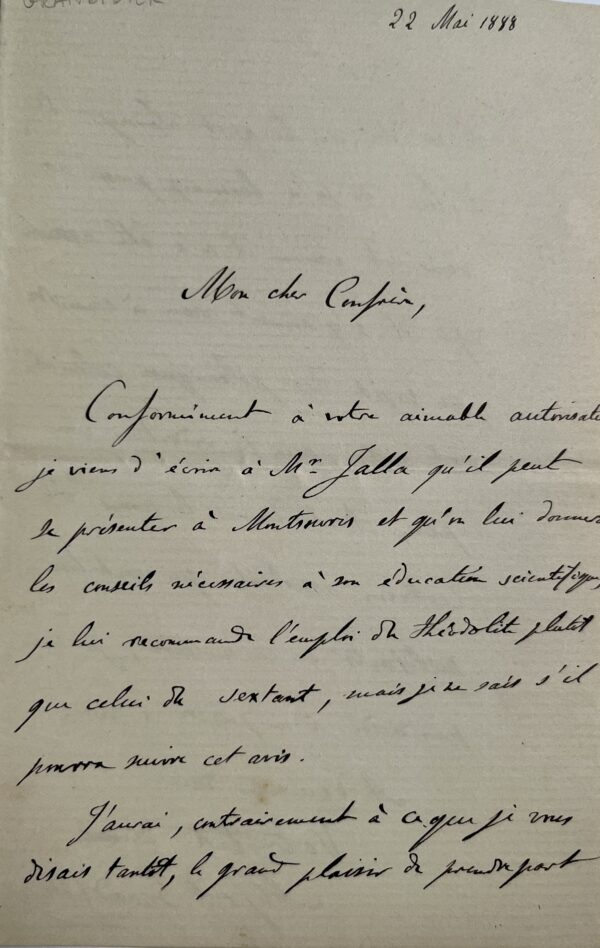 GRANDIDIER
22 Mai 1888
Mon cher Confrère,
Conformément à votre aimable autorisati
je viens d'écrire à Mr Jalla qu'il peut
se présenter à Montsouris et qu'on lui donnera
les conseils nécessaires à son éducation scientifique,
je lui recommande l'emploi du théodolite plutôt
que celui du sextant, mais je ne sais s'il
pourra suivre cet avis.
J'aurai, contrairement à ce que je vous
disais tantôt, le grand plaisir de prendre part